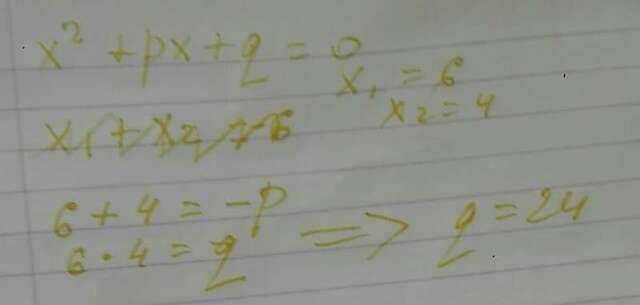 x² + px + q = 0
x₁ = 6
x₂ = 4
6 + 4 = -p
6 · 4 = q => q = 24